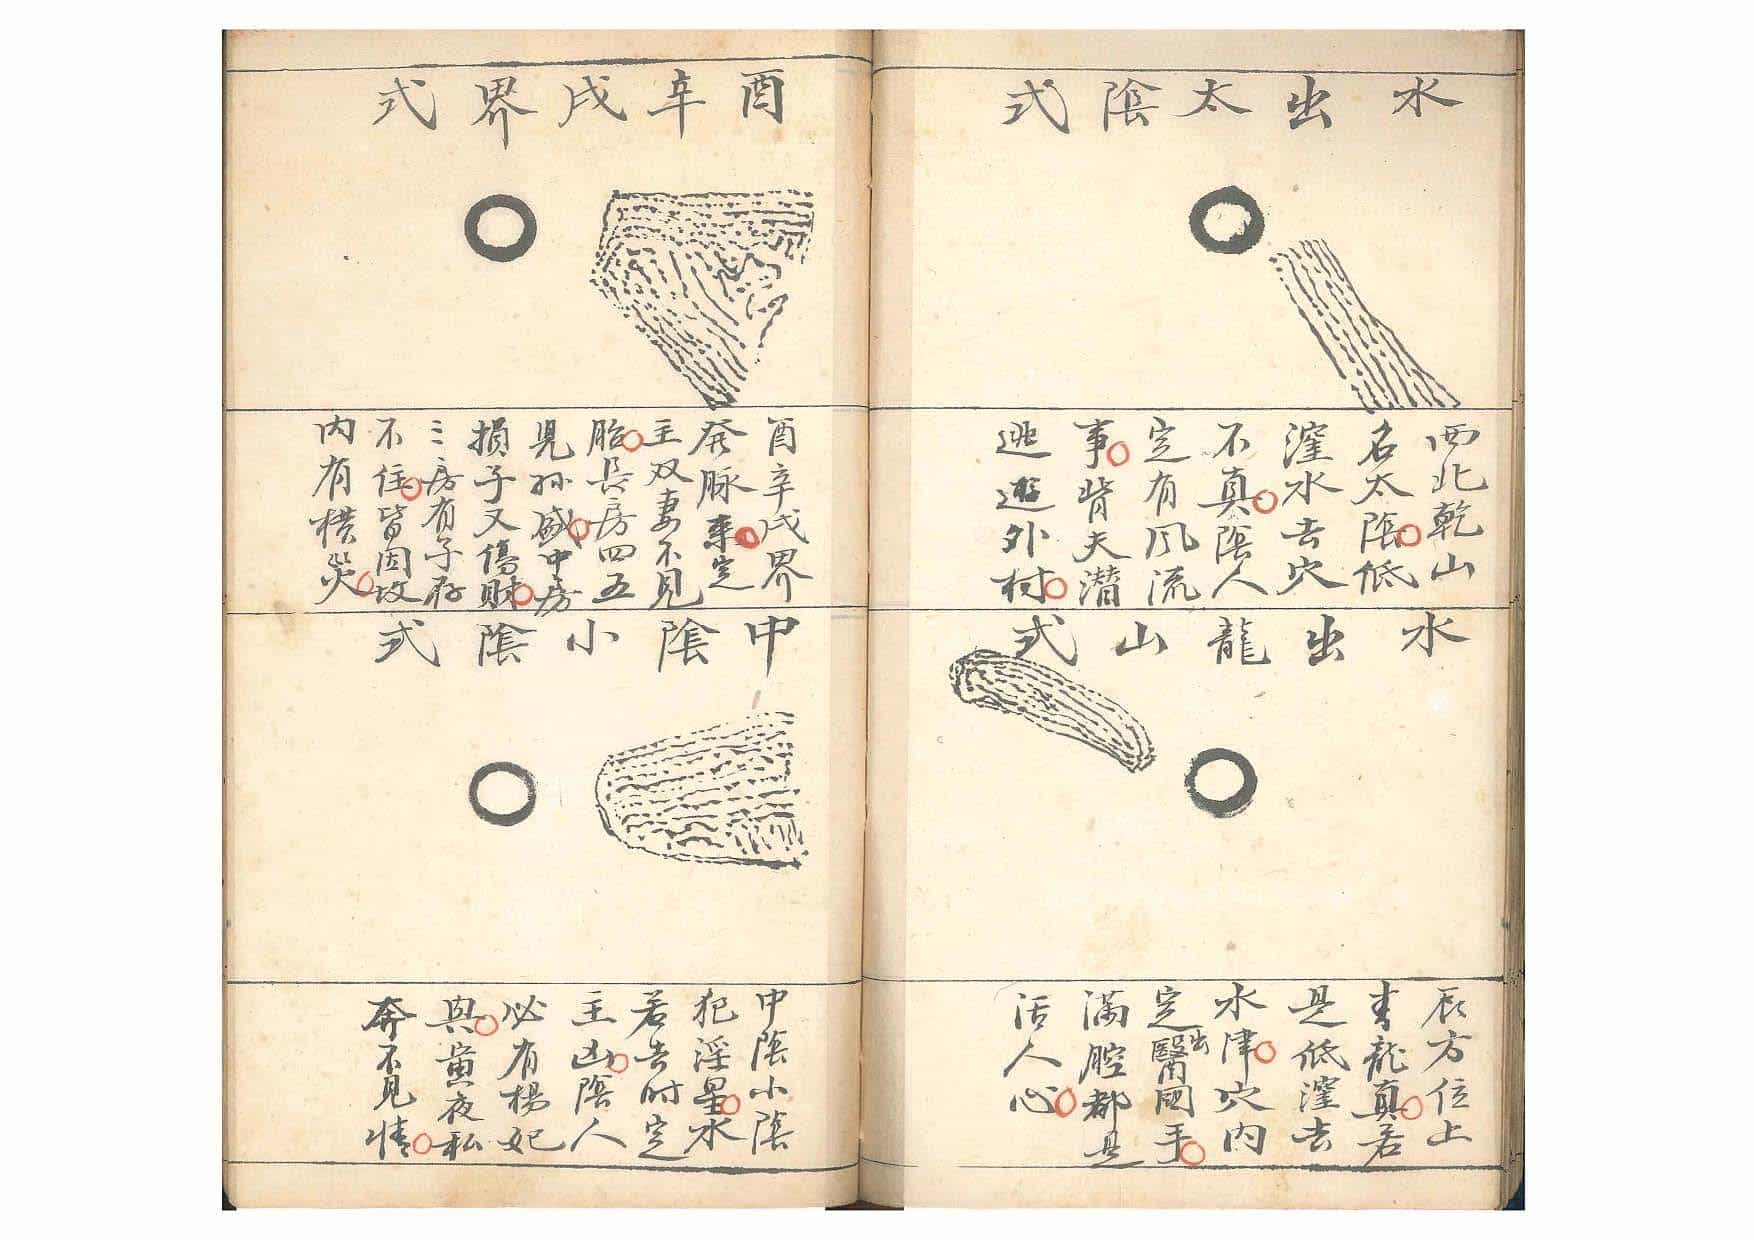 水出太陰式
西北乾山
名太陰低
漥水去穴
不真陰人
定有風流
事背夫潛
逃遊外村
水出龍山式
辰方位上
青龍真若
是低漥去
水津穴內
定出醫國手
滿腔都是
活人心
酉辛戌界式
酉辛戌界
發脉來定
主双妻不見
胎長房四五
見孫盛中房
損子又傷財
三房有子存
不住皆因坟
内有横災
中陰小陰式
中陰小陰
犯淫星水
若去时定
主凶陰人
必有楊妃
與黄夜私
奔不見情